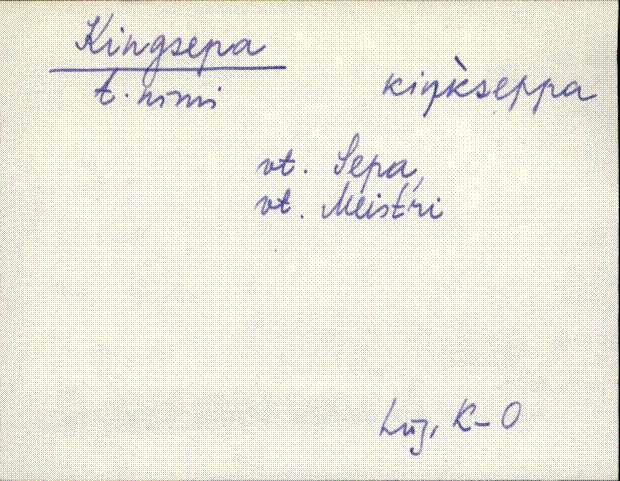 Kingsepa
t. nimi
kiŋ̀kseppa
vt. Sepa,
vt. Meistri
Lüg, K-O